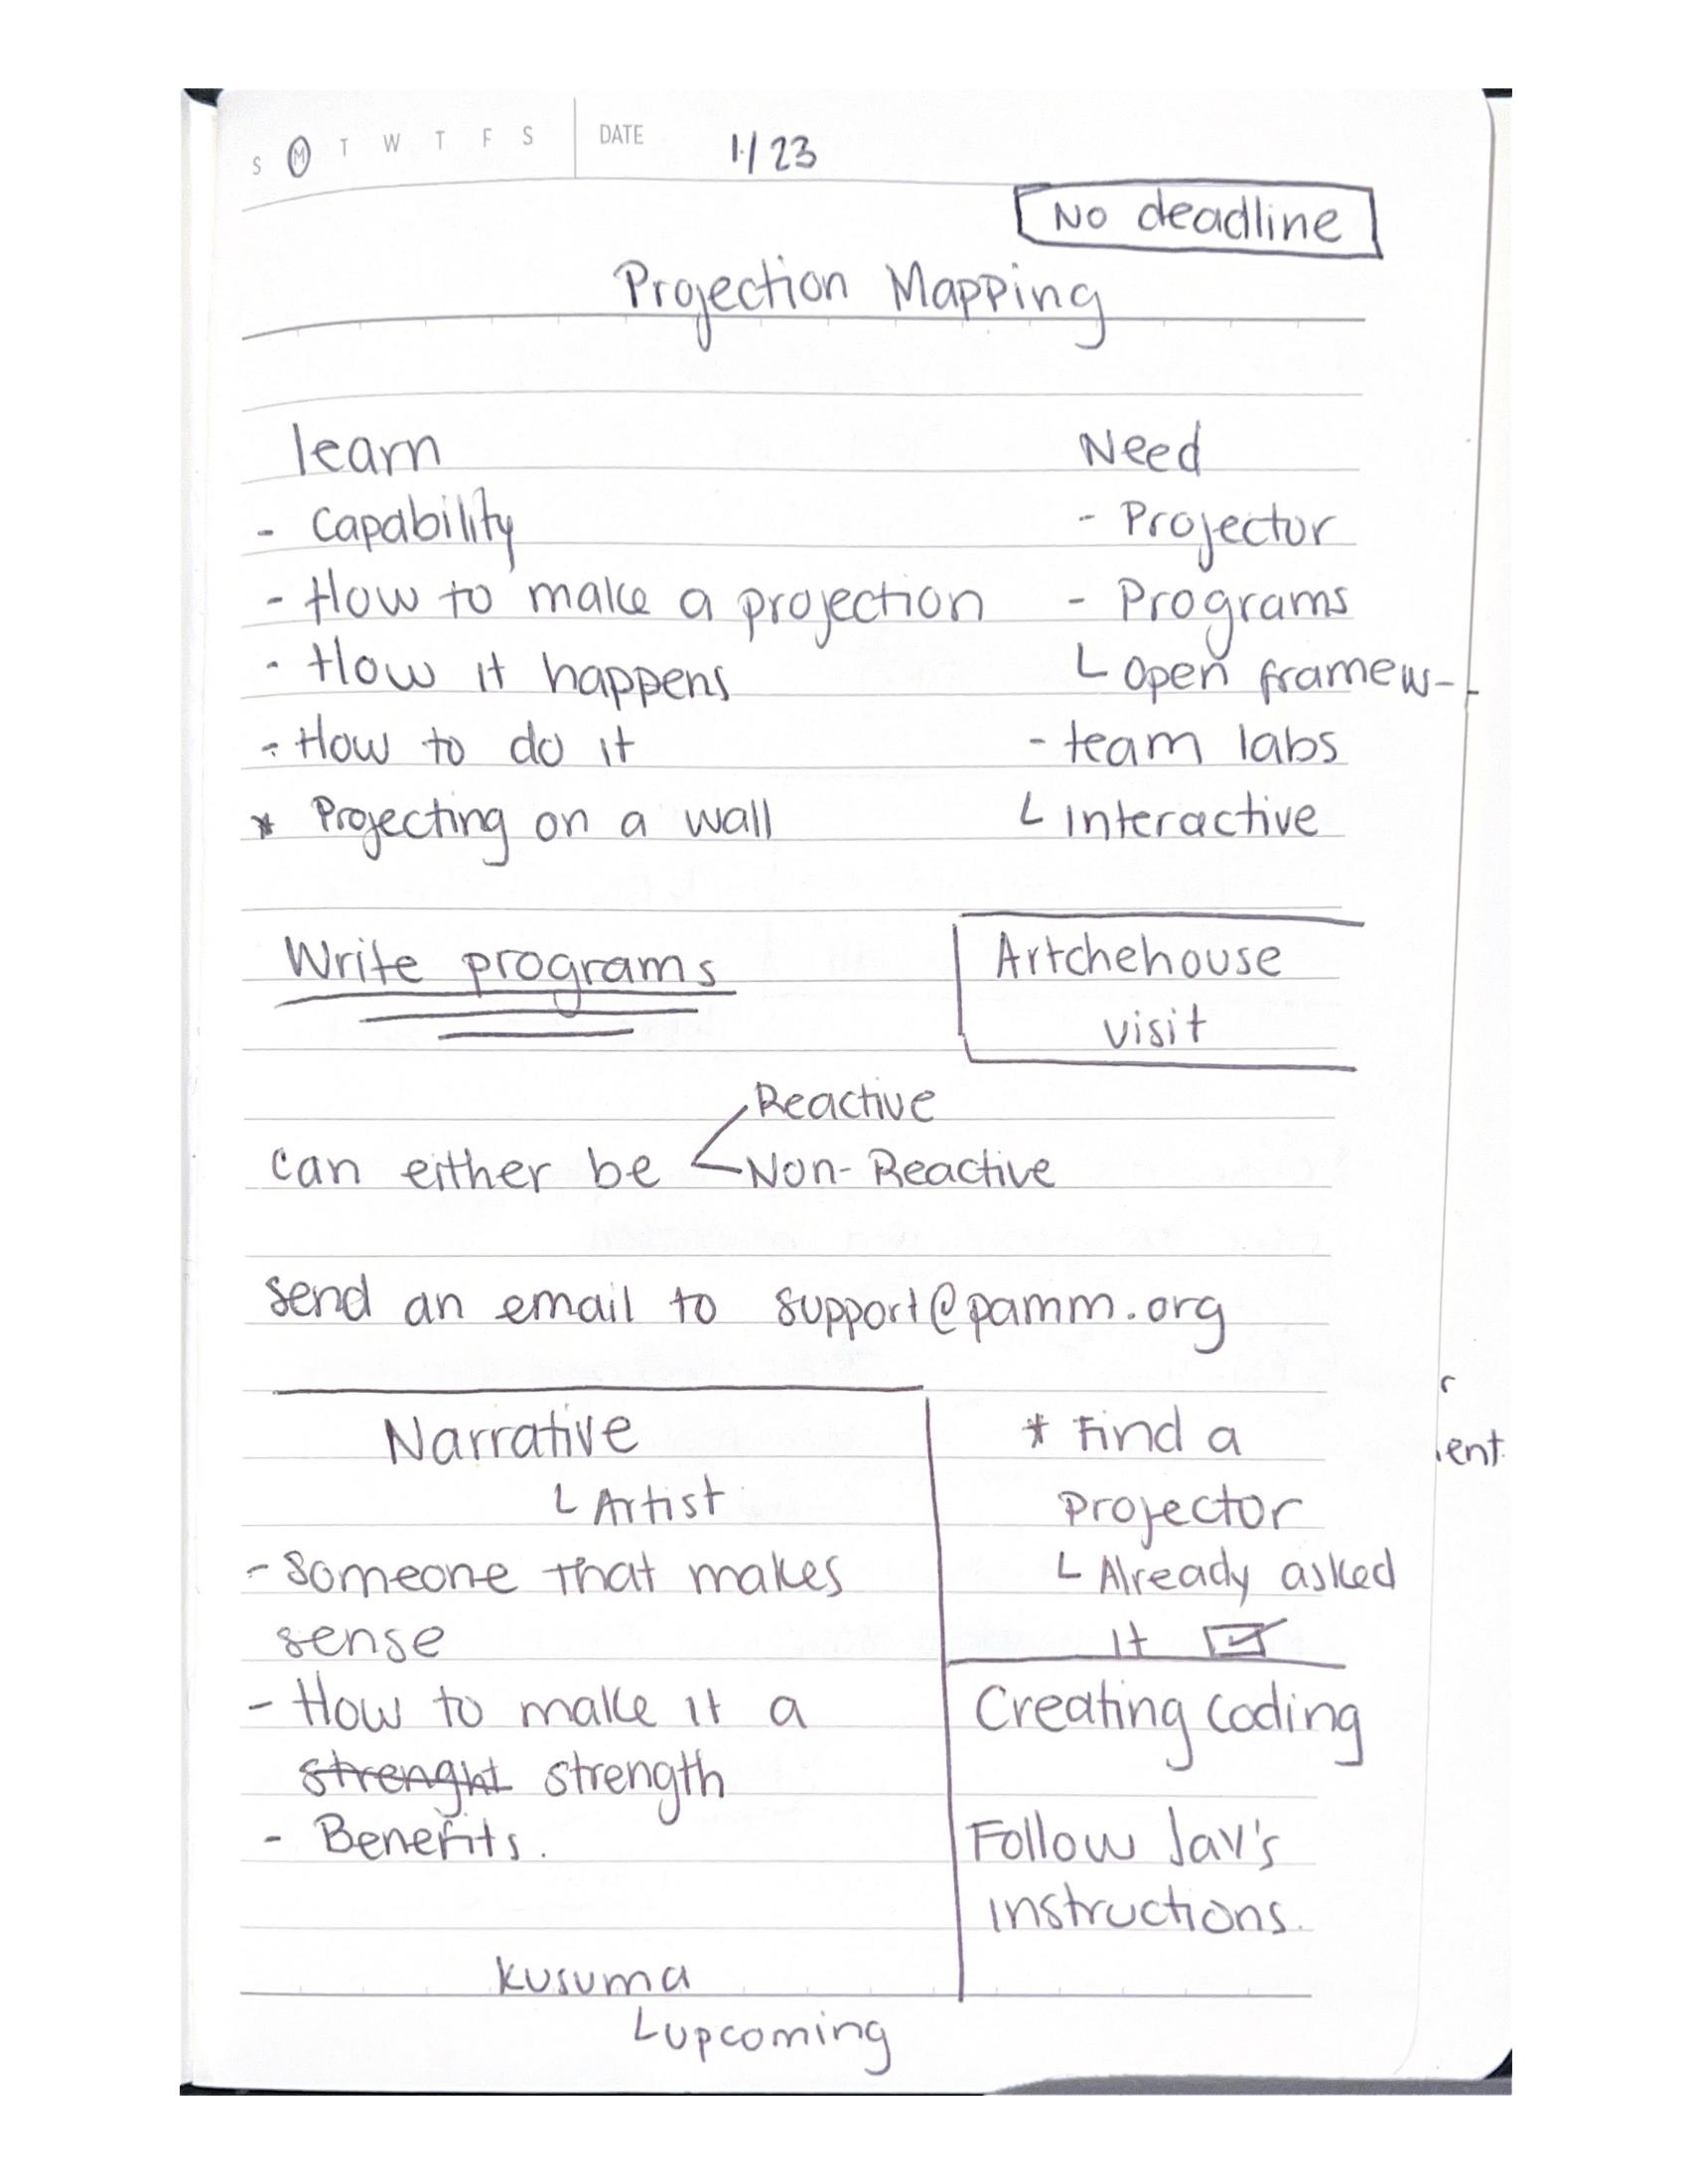 S M T W T F S DATE 1/23
No deadline
Projection Mapping
learn
- Capability
- How to make a projection
- How it happens
- How to do it
* Projecting on a wall
Need
- Projector
- Programs
L Open framew-
- team labs
L Interactive
Write programs
Artchehouse
visit
Reactive
can either be
Non-Reactive
Send an email to support@pamm.org
Narrative
L Artist
- Someone that makes
sense
- How to make it a
strenght strength
- Benefits.
* Find a
Projector
L Already asked
It
Creating coding
Follow Jav's
instructions.
Kusuma
L upcoming
r
ent